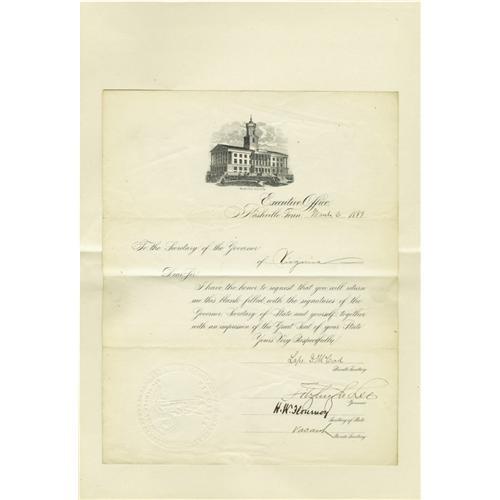 Executive Office,
Nashville, Tenn. March 6 1889
To the Secretary of the Governor
of Virginia
Dear Sir
I have the honor to request that you will return
me this blank filled with the signatures of the
Governor, Secretary of State and yourself, together
with an impression of the Great Seal of your State
Yours Very Respectfully,
Private Secretary
Fitzhugh Lee
Governor
H.W. Flournoy
Secretary of State
Vacant
Private Secretary